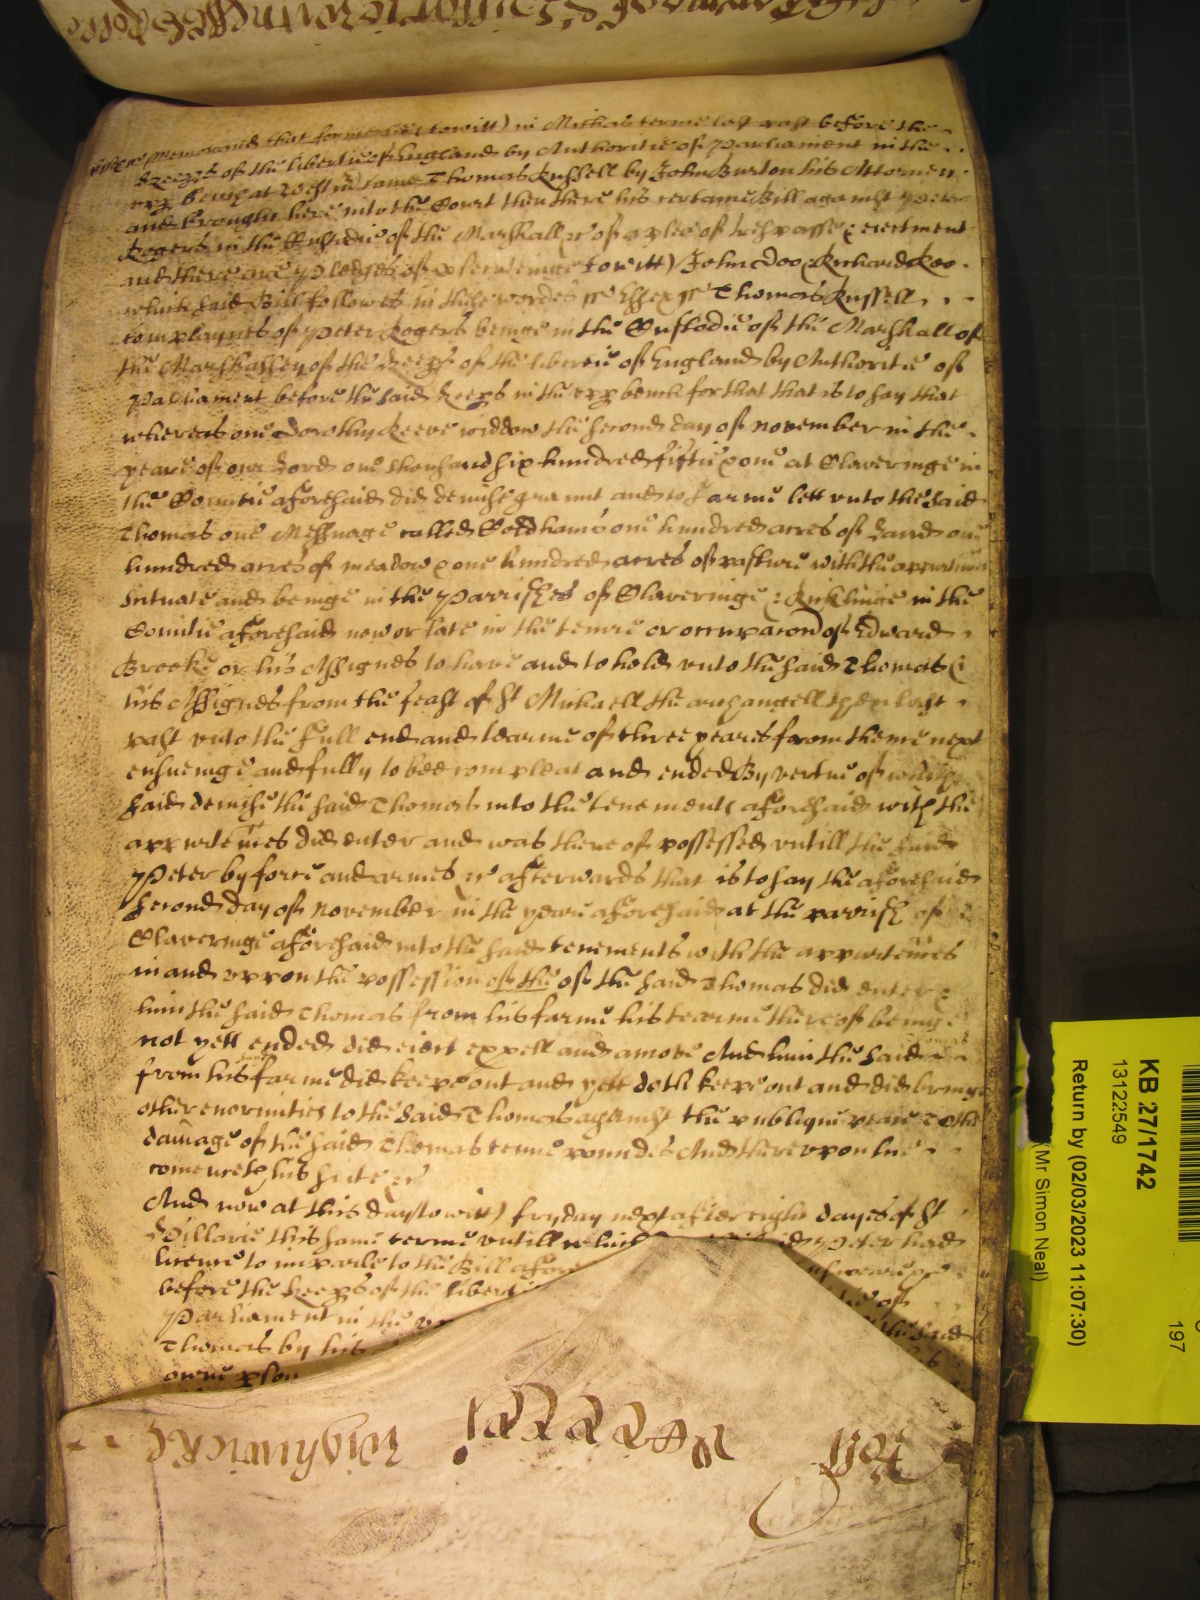 Memorand that formerlie (towitt) in Michas terme last past before the
Keeps of the libertie of England by Authoritie of Parliament in the
upp bench at Westm came Thomas Russell by John Burton his Attorney
and brought here into the Court then there his certaine Bill against Peter
Rogers in the Custodie of the Marshall &c of a plea of trespasse & eiectment
and there are Pledges of p'secutinge (towitt) John Doo & Richard Roo
which said Bill followes in these wordes ss Essex ss Thomas Russell
complaynes of Peter Rogers beinge in the Custodie of the Marshall of
the Marshalsey of the Keeps of the libertie of England by Authoritie of
Parliament before the said Keeps in the upp bench for that that is to say that
whereas one Dorothy Reeve widdow the second day of November in the
yeare of our Lord one thousand six hundred fiftie & one at Claveringe in
the Countie aforesaid did demise graunt and to farme lett unto the said
Thomas one Messuage called Coldhams one hundred acres of Land one
hundred acres of meadow & one hundred acres of pasture with the appurtnnces
scituate and beinge in the Parrishes of Claveringe & in the
Countie aforesaid now or late in the tenure or occupacon of Edward
Brooke or his Assignes to have and to hold unto the said Thomas &
his Assignes from the feast of St Michaell the archangell then last
past unto the full end and tearme of three yeares from thence next
ensueinge and fully to bee compleat and ended By vertue of which
said demise the said Thomas into the tenements aforesaid with the
appurtennces did enter and was thereof possessed untill the said
Peter by force and armes &c afterwards that is to say the aforesaid
second day of November in the yeare aforesaid at the parrish of
Claveringe aforesaid into the said tenements with the appurtennces
in and uppon the possession of the of the said Thomas did enter &
him the said Thomas from his farme his tearme thereof beinge
not yett ended did eiect expell and amove And him the said
from his said farme did keepe out and yett doth keepe out and did bringe
other enormities to the said Thomas against the publique peace To the
damage of the said Thomas tenne poundes And thereupon he
Suite &c
And now at this day (towitt) fryday next after eight dayes of St
Hillarie this same terme untill which Peter had
licence to imparle to the Bill
before the Keeps of the
Parliament in the
Thomas by his the said
owne pson
KB 27/1742
13122549
Return by (02/03/2023 11:07:30)
(Mr Simon Neal)
197